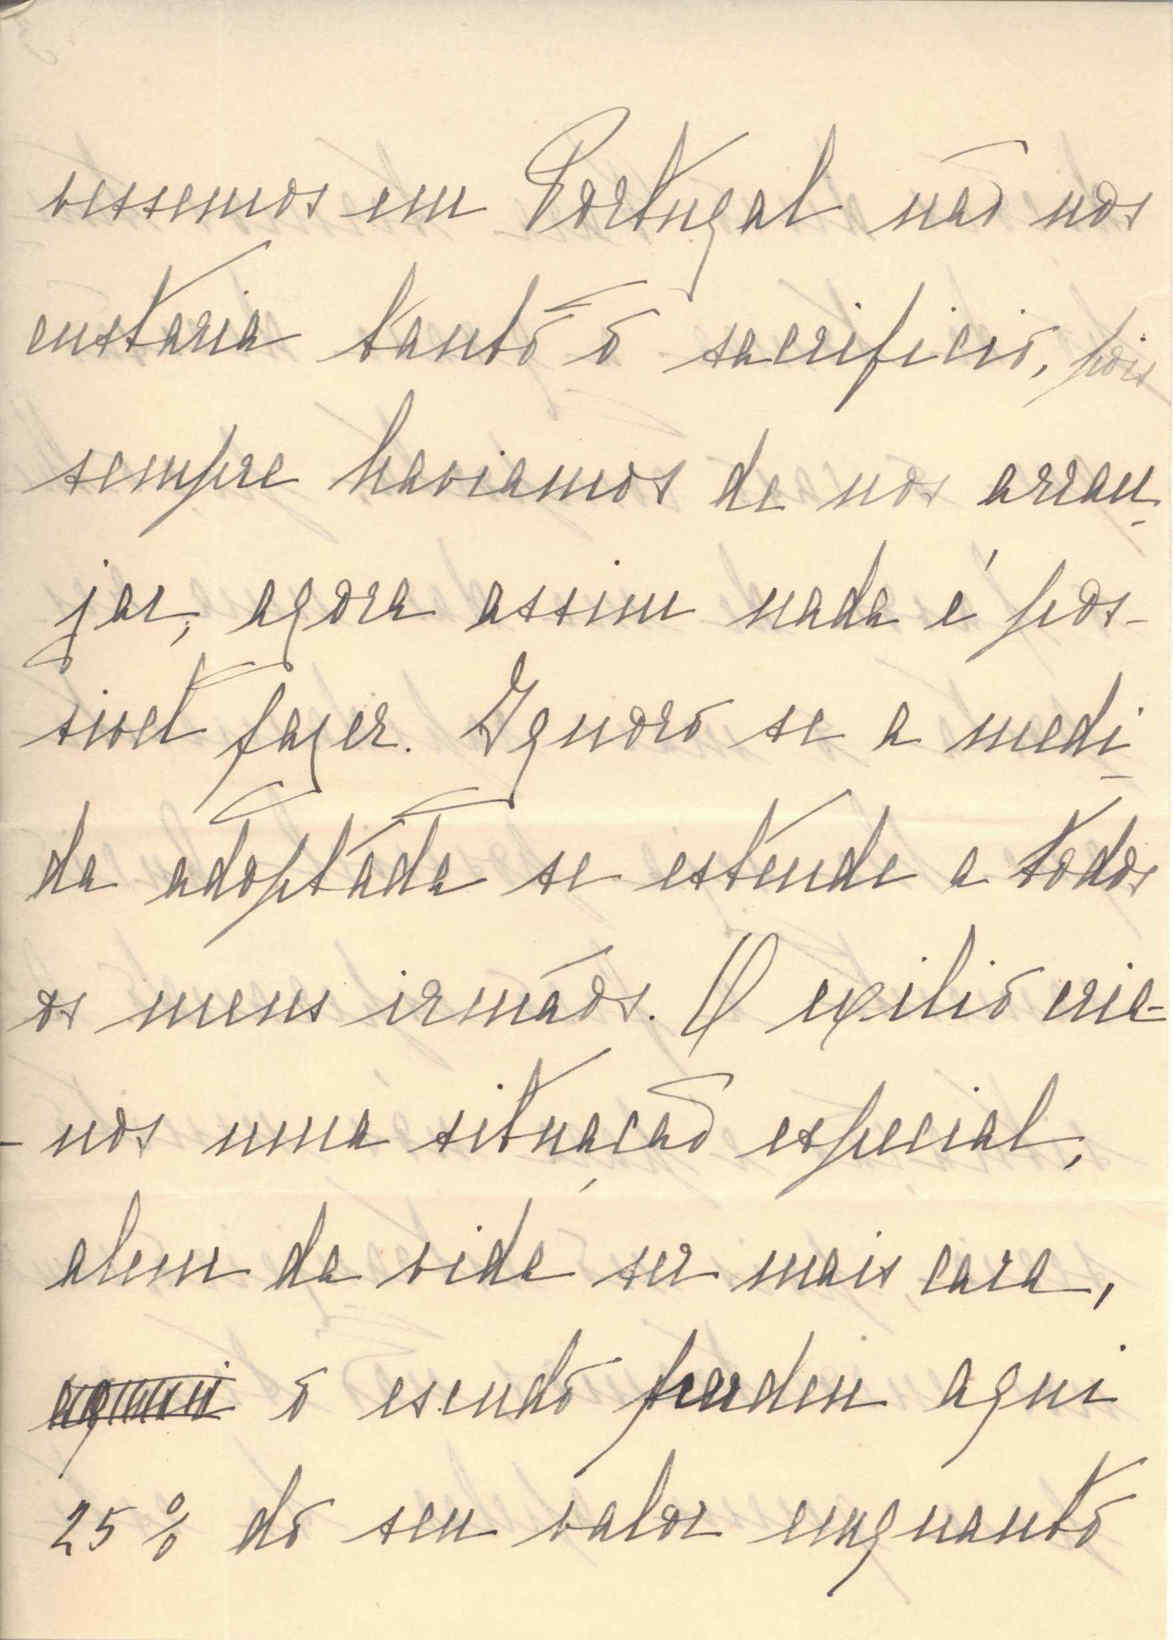 vessemos em Portugal não nos
custaria tanto o sacrificio, pois
sempre haviamos de nos arran-
jar, agora assim nada é pos-
sivel fazer. Ignoro se a medi-
da adoptada se estende a todos
os meus irmãos. O exilio crie-
-nos uma situação especial,
alem da vida ser mais cara,
aqui o escudo perdeu aqui
25% do seu valor emquanto